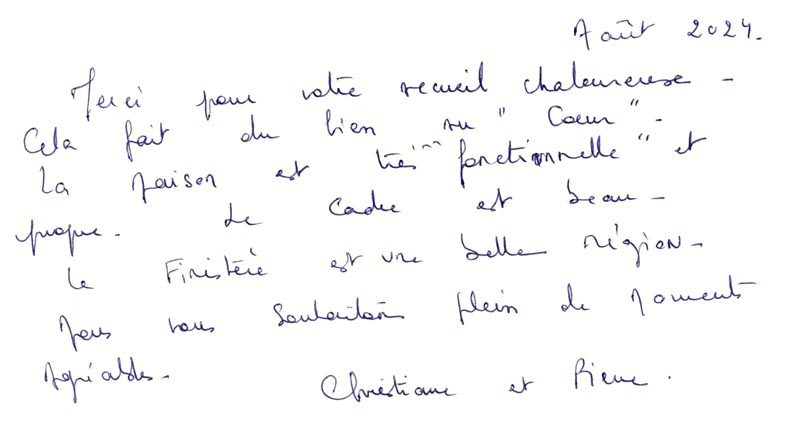 Août 2024.
Merci pour votre accueil chaleureuse -
Cela fait du bien au "Coeur" -
La Maison est très "fonctionnelle" et
propre. Le Cadre est beau -
Le Finistère est une belle région -
Nous vous souhaitons plein de moments
Agréables -
Christiane et Pierre.